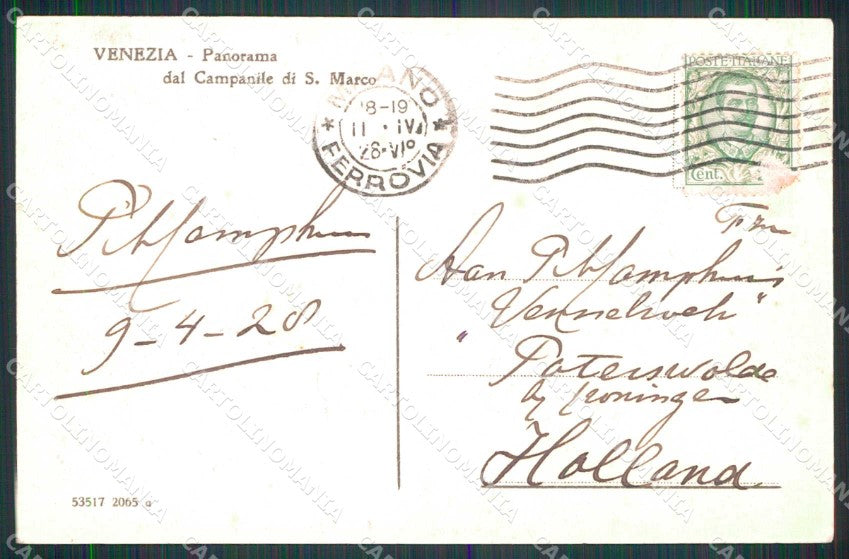 VENEZIA - Panorama
dal Campanile di S. Marco
MILANO
18-19
11 · IV
28·VIº
* FERROVIA *
POSTE ITALIANE
Cent.
9-4-28
Aan
Paterswolde
by Groningen
Holland.
53517 2065 a
CARTOLINOMANIA